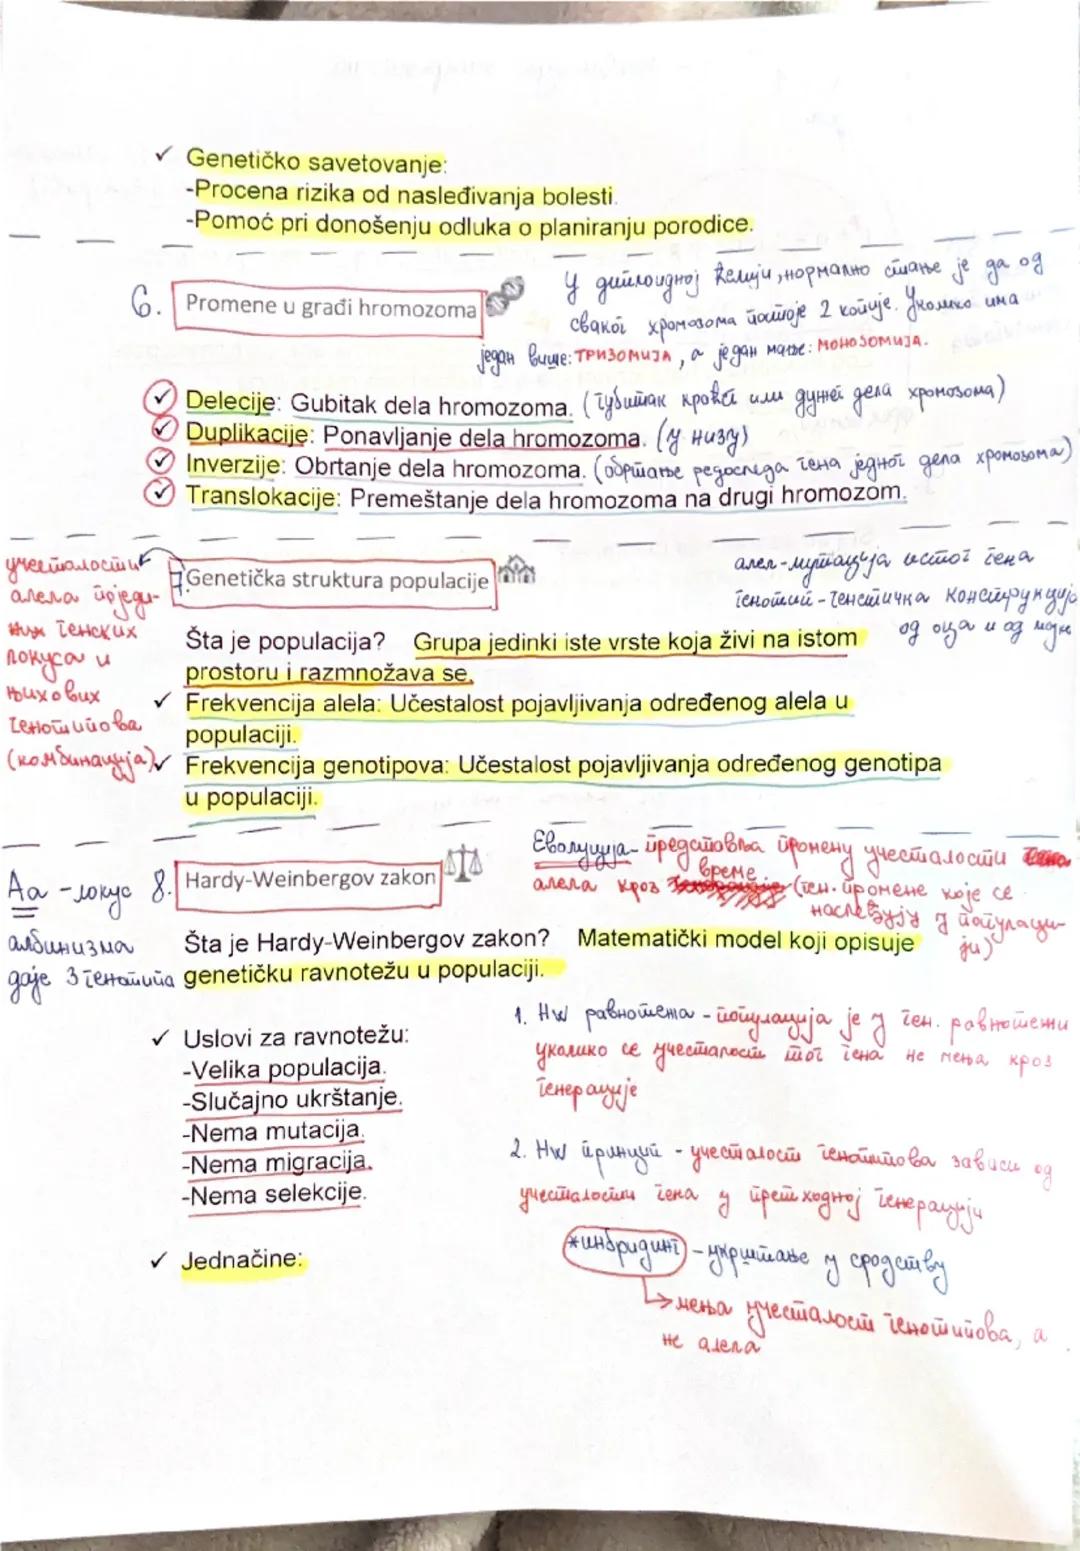 ✓ Genetičko savetovanje:
-Procena rizika od nasleđivanja bolesti.
-Pomoć pri donošenju odluka o planiranju porodice.
6. Promene u građi hromozoma
У диплоидној ћелији, нормално стање је да од
сваког хромозома постоје 2 копије. Уколико има
један више: ТРИЗОМИЈА, а један мање: МОНОЗОМИЈА.
✓ Delecije: Gubitak dela hromozoma. (губитак краћег или дужег дела хромозома)
✓ Duplikacije: Ponavljanje dela hromozoma. (у низу)
✓ Inverzije: Obrtanje dela hromozoma. (обртање редоследа гена једног дела хромозома)
✓ Translokacije: Premeštanje dela hromozoma na drugi hromozom.
учесталости
алела поједи-
них генских
локуса и
њихових
генотипова
(комбинација)
7. Genetička struktura populacije
алел-мутација истог гена
генотип-генетичка конструкција
од оца и од мајке
Šta je populacija? Grupa jedinki iste vrste koja živi na istom
prostoru i razmnožava se.
✓ Frekvencija alela: Učestalost pojavljivanja određenog alela u
populaciji.
✓ Frekvencija genotipova: Učestalost pojavljivanja određenog genotipa
u populaciji.
Еволуција-представља промену учесталости
алела кроз време (ген. промене које се
наслеђују у популаци-
ји)
Аа -локус
албинизма
даје 3 генотипа
8. Hardy-Weinbergov zakon
Šta je Hardy-Weinbergov zakon? Matematički model koji opisuje
genetičku ravnotežu u populaciji.
✓ Uslovi za ravnotežu:
-Velika populacija.
-Slučajno ukrštanje.
-Nema mutacija.
-Nema migracija.
-Nema selekcije.
✓ Jednačine:
1. HW равнотежа - популација је у ген. равнотежи
уколико се учесталост тог гена не мења кроз
генерације
2. HW принцип - учесталост генотипова зависи од
учесталости гена у претходној генерацији
*инбридинг - укрштање у сродству
мења учесталост генотипова, а
не алела